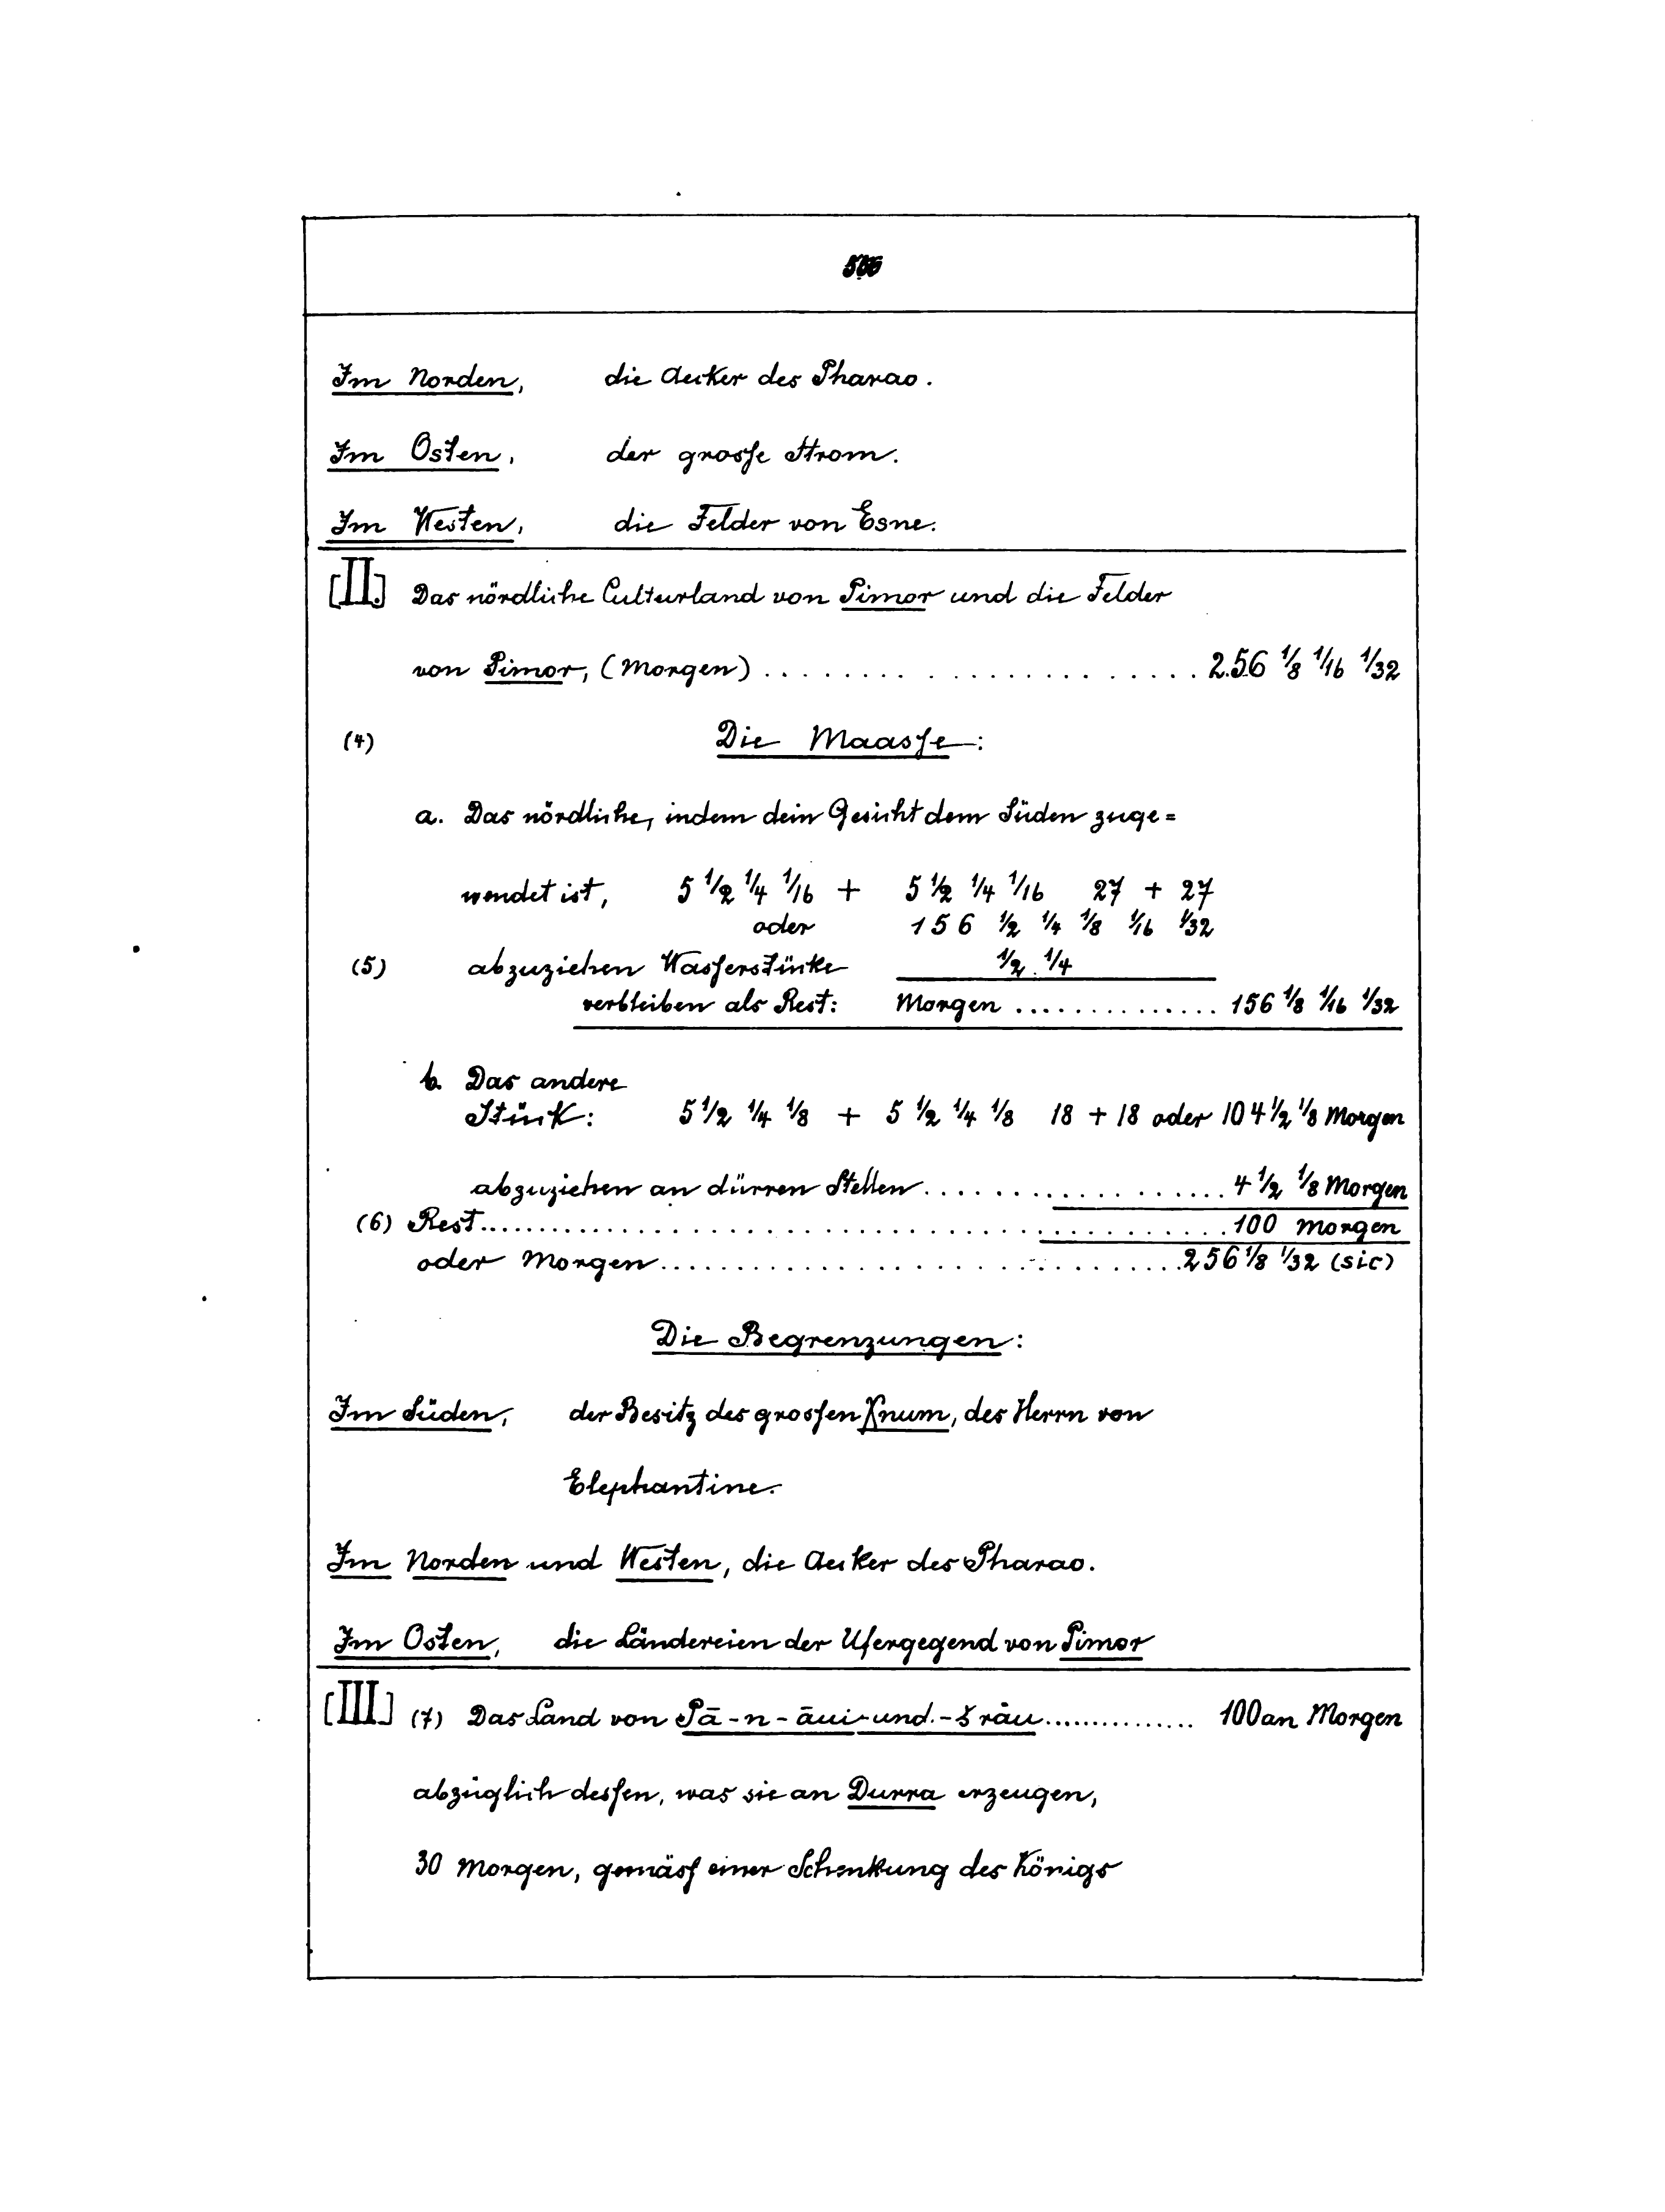 Im Norden, die Aecker des Pharao.
Im Osten, der grosse Strom.
Im Westen, die Felder von Esne.
[II.] Das nördliche Culturland von Pimor und die Felder
von Pimor, (Morgen) ........................ 256 1/8 1/16 1/32
(4) Die Maasse:
a. Das nördliche, indem dein Gesicht dem Süden zuge=
wendet ist, 5 1/2 1/4 1/16 + 5 1/2 1/4 1/16 27 + 27
oder 156 1/2 1/4 1/8 1/16 1/32
(5) abzuziehen Wasserstücke 1/2 1/4
verbleiben als Rest: Morgen ............... 156 1/8 1/16 1/32
b. Das andere
Stück: 5 1/2 1/4 1/8 + 5 1/2 1/4 1/8 18 + 18 oder 104 1/2 1/8 Morgen
abzuziehen an dürren Stellen .................... 4 1/2 1/8 Morgen
(6) Rest ........................................ 100 Morgen
oder Morgen ............................. 256 1/8 1/32 (sic)
Die Begrenzungen:
Im Süden, der Besitz des grossen Knum, des Herrn von
Elephantine.
Im Norden und Westen, die Aecker des Pharao.
Im Osten, die Ländereien der Ufergegend von Pimor
[III.] (7) Das Land von Pā-n-āui-und- ............... 100 an Morgen
abzüglich dessen, was sie an Durra erzeugen,
30 Morgen, gemäss einer Schenkung des Königs